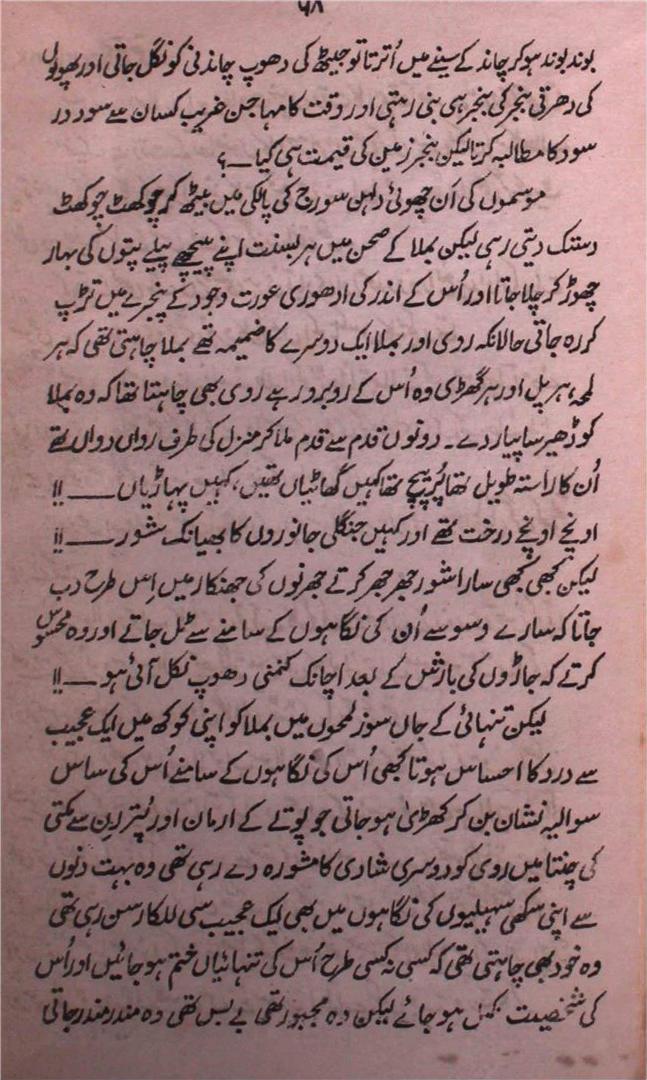 ۵۸
بوند بوند ہو کر چاند کے سینے میں اُترتا تو جیٹھ کی دھوپ چاندنی کو نگل جاتی اور پھولوں
کی دھرتی بنجر کی بنجر ہی بنی رہتی اور وقت کا مہاجن غریب کسان سے سود در
سود کا مطالبہ کرتا لیکن بنجر زمین کی قیمت ہی کیا ۔۔؟
موسموں کی اَن چھوئی دلہن سورج کی پالکی میں بیٹھ کر چوکھٹ چوکھٹ
دستک دیتی رہی لیکن بملا کے صحن میں ہر بسنت اپنے پیچھے پیلے پتوں کی بہار
چھوڑ کر چلا جاتا اور اُس کے اندر کی ادھوری عورت وجود کے پنجرے میں تڑپ
کر رہ جاتی حالانکہ روی اور بملا ایک دوسرے کا ضمیمہ تھے بملا چاہتی تھی کہ ہر
لمحہ، ہر پل اور ہر گھڑی وہ اُس کے روبرو رہے روی بھی چاہتا تھا کہ وہ بملا
کو ڈھیر سا پیار دے ۔ دونوں قدم سے قدم ملا کر منزل کی طرف رواں دواں تھے
اُن کا راستہ طویل تھا پُر پیچ تھا کہیں گھاٹیاں تھیں، کہیں پہاڑیاں ۔۔۔ !!
اونچے اونچے درخت تھے اور کہیں جنگلی جانوروں کا بھیانک شور ۔۔۔ !!
لیکن کبھی کبھی سارا شور جھر جھر کرتے جھرنوں کی جھنکار میں اِس طرح دب
جاتا کہ سارے وسوسے اُن کی نگاہوں کے سامنے سے ٹل جاتے اور وہ محسوس
کرتے کہ جاڑوں کی بارش کے بعد اچانک کنمنی دھوپ نکل آئی ہو ۔۔۔ !!
لیکن تنہائی کے جاں سوز لمحوں میں بملا کو اپنی کوکھ میں ایک عجیب
سے درد کا احساس ہوتا کبھی اُس کی نگاہوں کے سامنے اُس کی ساس
سوالیہ نشان بن کر کھڑی ہو جاتی جو پوتے کے ارمان اور پُتر رِن سے مکتی
کی چنتا میں روی کو دوسری شادی کا مشورہ دے رہی تھی وہ بہت دنوں
سے اپنی سکھی سہیلیوں کی نگاہوں میں بھی ایک عجیب سی للکار سن رہی تھی
وہ خود بھی چاہتی تھی کہ کسی نہ کسی طرح اُس کی تنہائیاں ختم ہو جائیں اور اُس
کی شخصیت مکمل ہو جائے لیکن وہ مجبور تھی بے بس تھی وہ مندر مندر جاتی